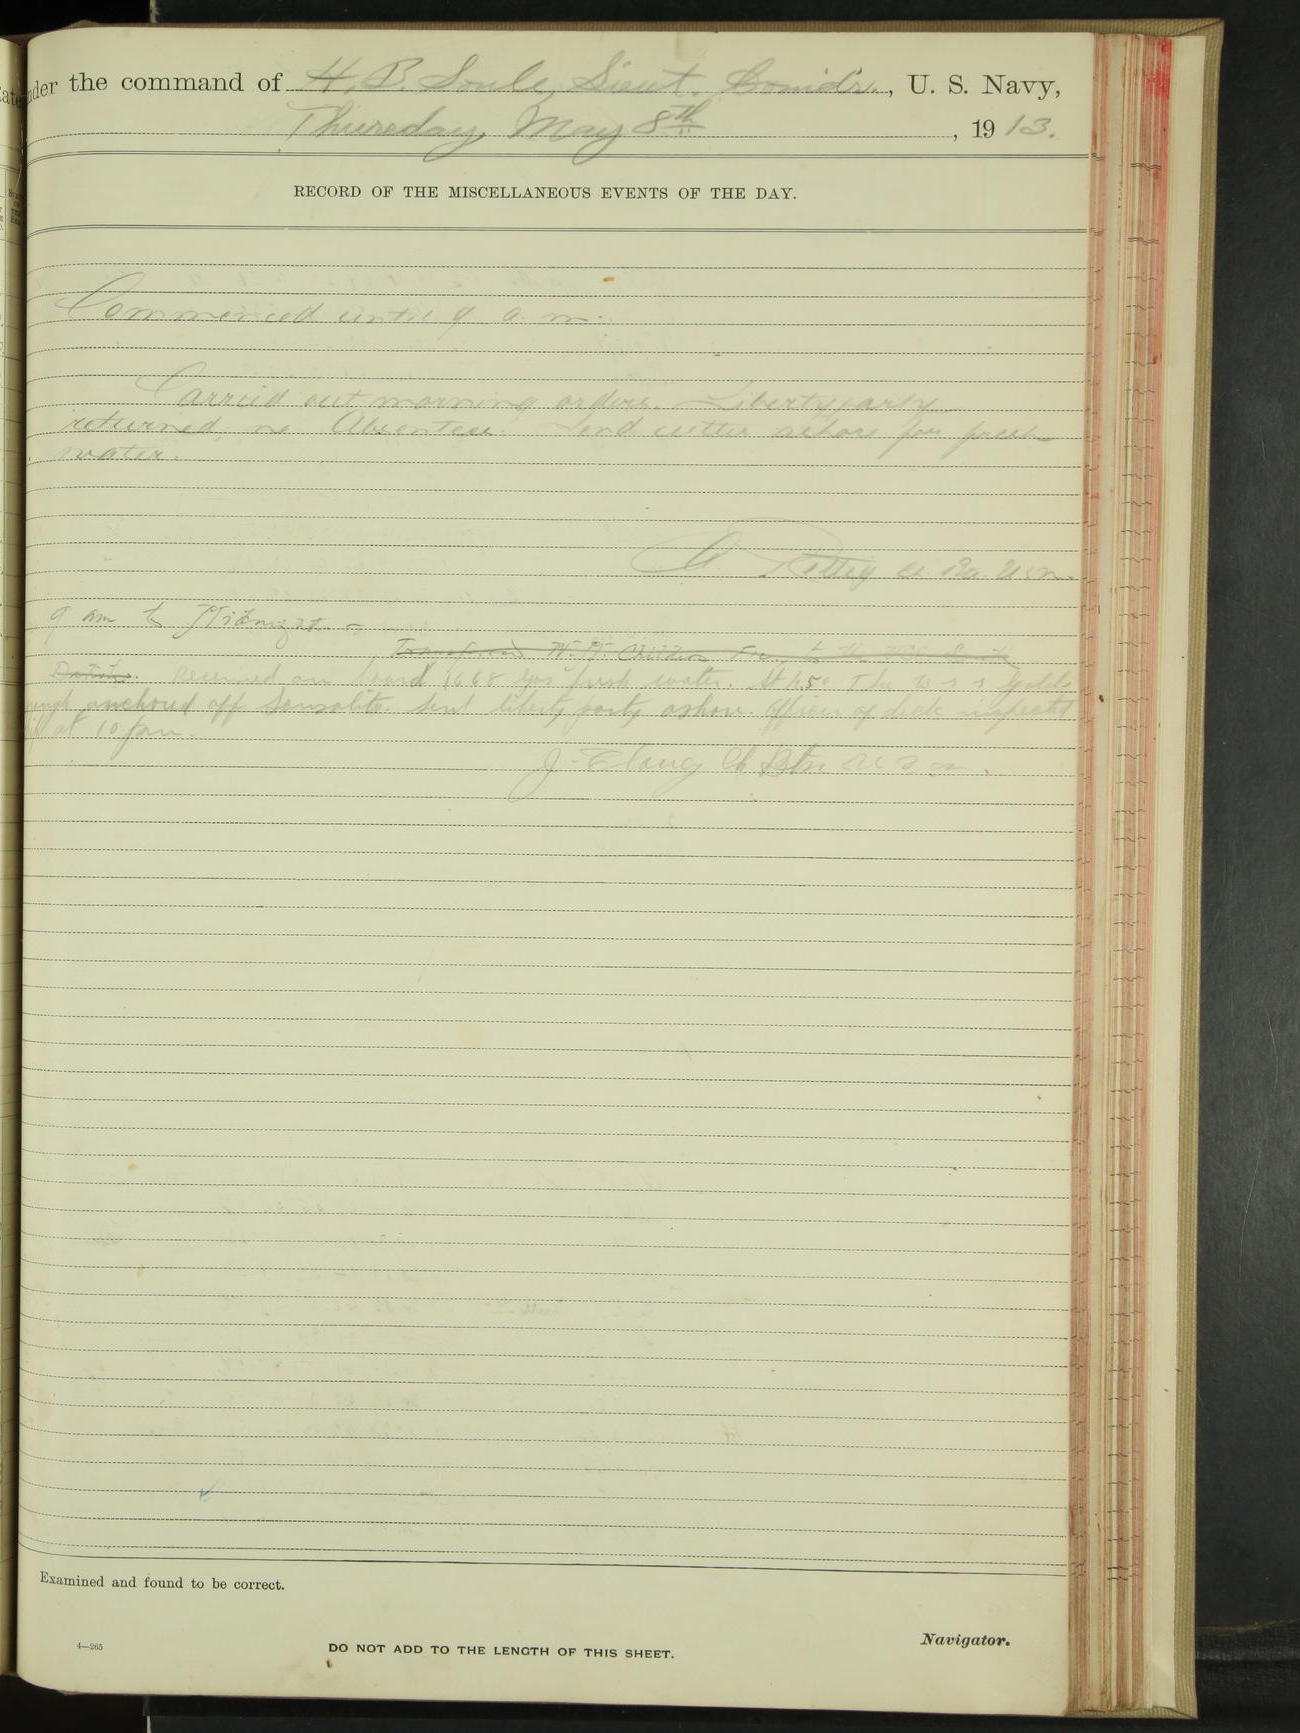 under the command of H. B. Soule, Lieut. Comd'r., U. S. Navy,
Thursday, May 8th, 1913.
RECORD OF THE MISCELLANEOUS EVENTS OF THE DAY.
Commenced until 9 a. m.
Carried out morning orders. Liberty party
returned, no Absentees. Send cutter ashore for fresh
water.
9 am to Midnight
Transferred W. H. to the
Received on board 1668 gas fresh water. At The U S S
anchored off Sausalito. Sent liberty party ashore. Officer of deck inspected
at 10 pm.
Examined and found to be correct.
4—265
DO NOT ADD TO THE LENGTH OF THIS SHEET.
Navigator.